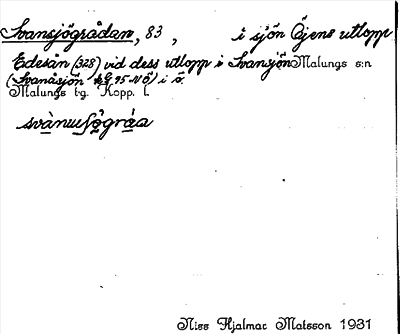 Svansjögrådan, 83, i sjön Öjens utlopp
Edesån (328) vid dess utlopp i Svansjön Malungs s:n
(Svanåsjön 95 NÖ) i ö.
Malungs tg. Kopp. l.
Niss Hjalmar Matsson 1931